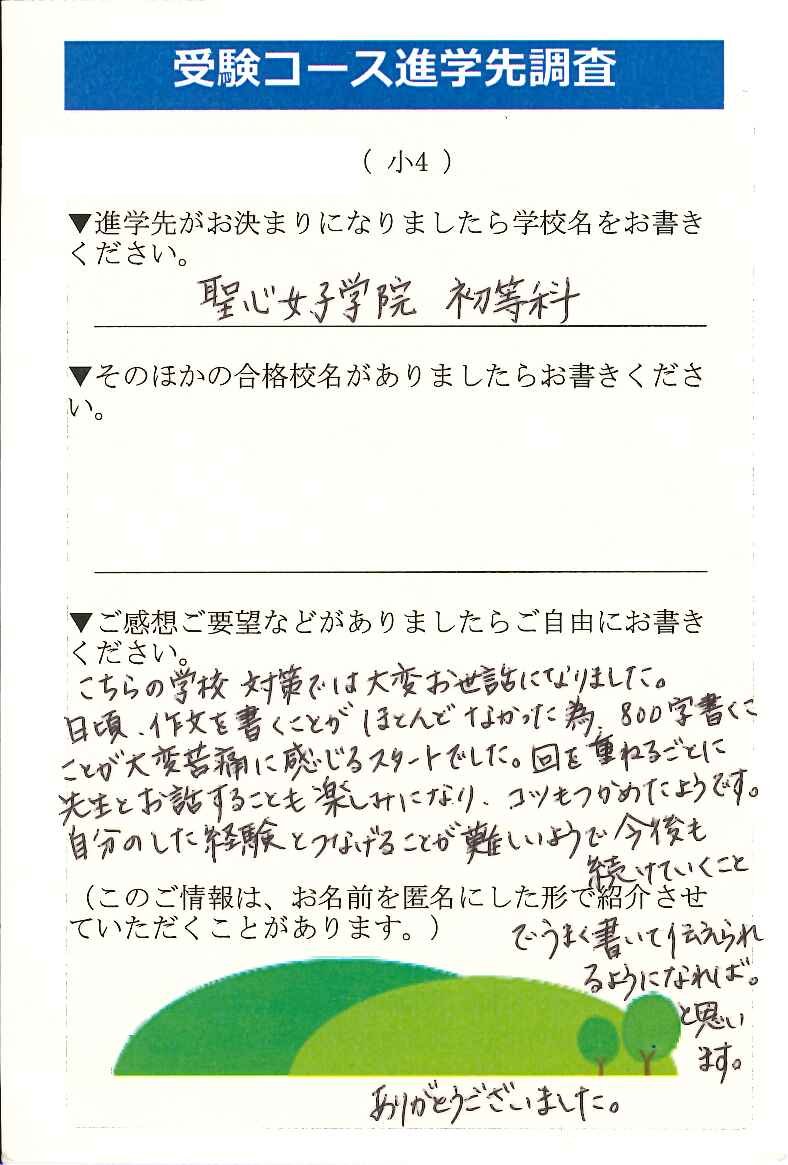 受験コース進学先調査
（ 小4 ）
▼進学先がお決まりになりましたら学校名をお書き
ください。
聖心女子学院 初等科
▼そのほかの合格校名がありましたらお書きくださ
い。
▼ご感想ご要望などがありましたらご自由にお書き
ください。
こちらの学校 対策では大変お世話になりました。
日頃、作文を書くことがほとんどなかった為、800字書くこ
ことが大変苦痛に感じるスタートでした。回を重ねるごとに
先生とお話することも楽しみになり、コツもつかめたようです。
自分のした経験とつなげることが難しいようで今後も
続けていくこと
（このご情報は、お名前を匿名にした形で紹介させ
ていただくことがあります。）
でうまく書いて伝えられ
るようになれば。
と思い
ます。
ありがとうございました。